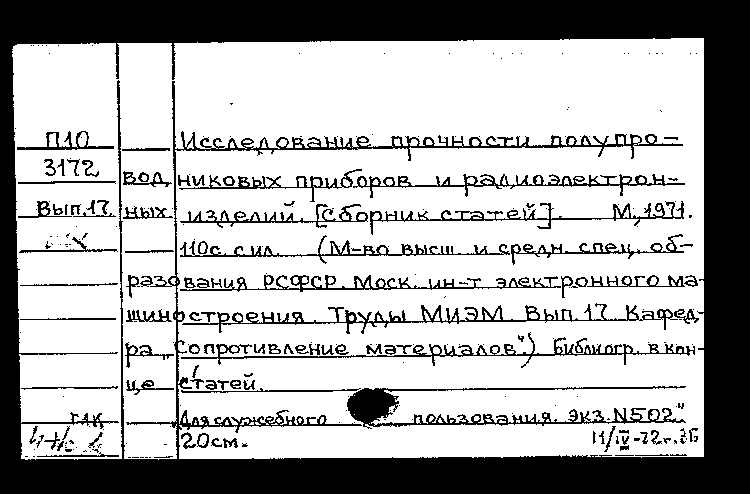 П10 Исследование прочности полупро-
3172 вод никовых приборов и радиоэлектрон-
Вып.17. ных изделий. [Сборник статей]. М., 1971.
110с. с ил. (М-во высш. и средн. спец. об-
разования РСФСР. Моск. ин-т электронного ма-
шиностроения. Труды МИЭМ. Вып. 17. Кафед-
ра „Сопротивление материалов".) Библиогр. в кон-
це статей.
„Для служебного пользования. экз. N502"
20см.